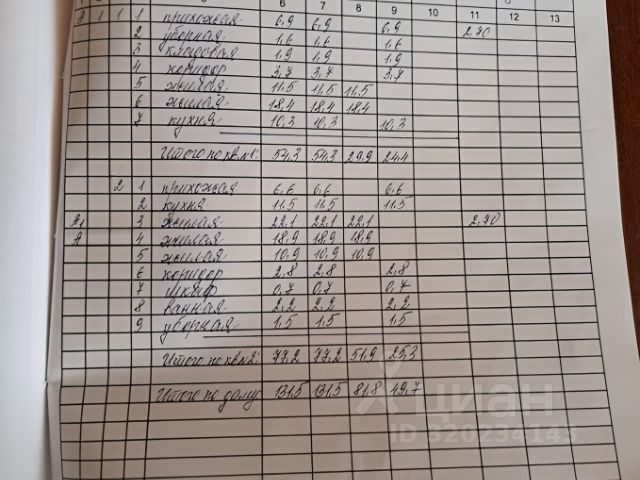 6 7 8 9 10 11 12 13
1 1 1 прихожая 6,9 6,9 6,9
2 уборная 1,6 1,6 1,6 2,70
3 кладовая 1,9 1,9 1,9
4 коридор 3,7 3,7 3,7
5 жилая 11,5 11,5 11,5
6 жилая 18,4 18,4 18,4
7 кухня 10,3 10,3 10,3
Итого по кв.№1: 54,3 54,3 29,9 24,4
2 1 прихожая 6,6 6,6 6,6
2 кухня 11,5 11,5 11,5
А1 3 жилая 22,1 22,1 22,1 2,70
А 4 жилая 18,9 18,9 18,9
5 жилая 10,9 10,9 10,9
6 коридор 2,8 2,8 2,8
7 шкаф 0,7 0,7 0,7
8 ванная 2,2 2,2 2,2
9 уборная 1,5 1,5 1,5
Итого по кв.№2: 77,2 77,2 51,9 25,3
Итого по дому: 131,5 131,5 81,8 49,7
циан
ID 320234143